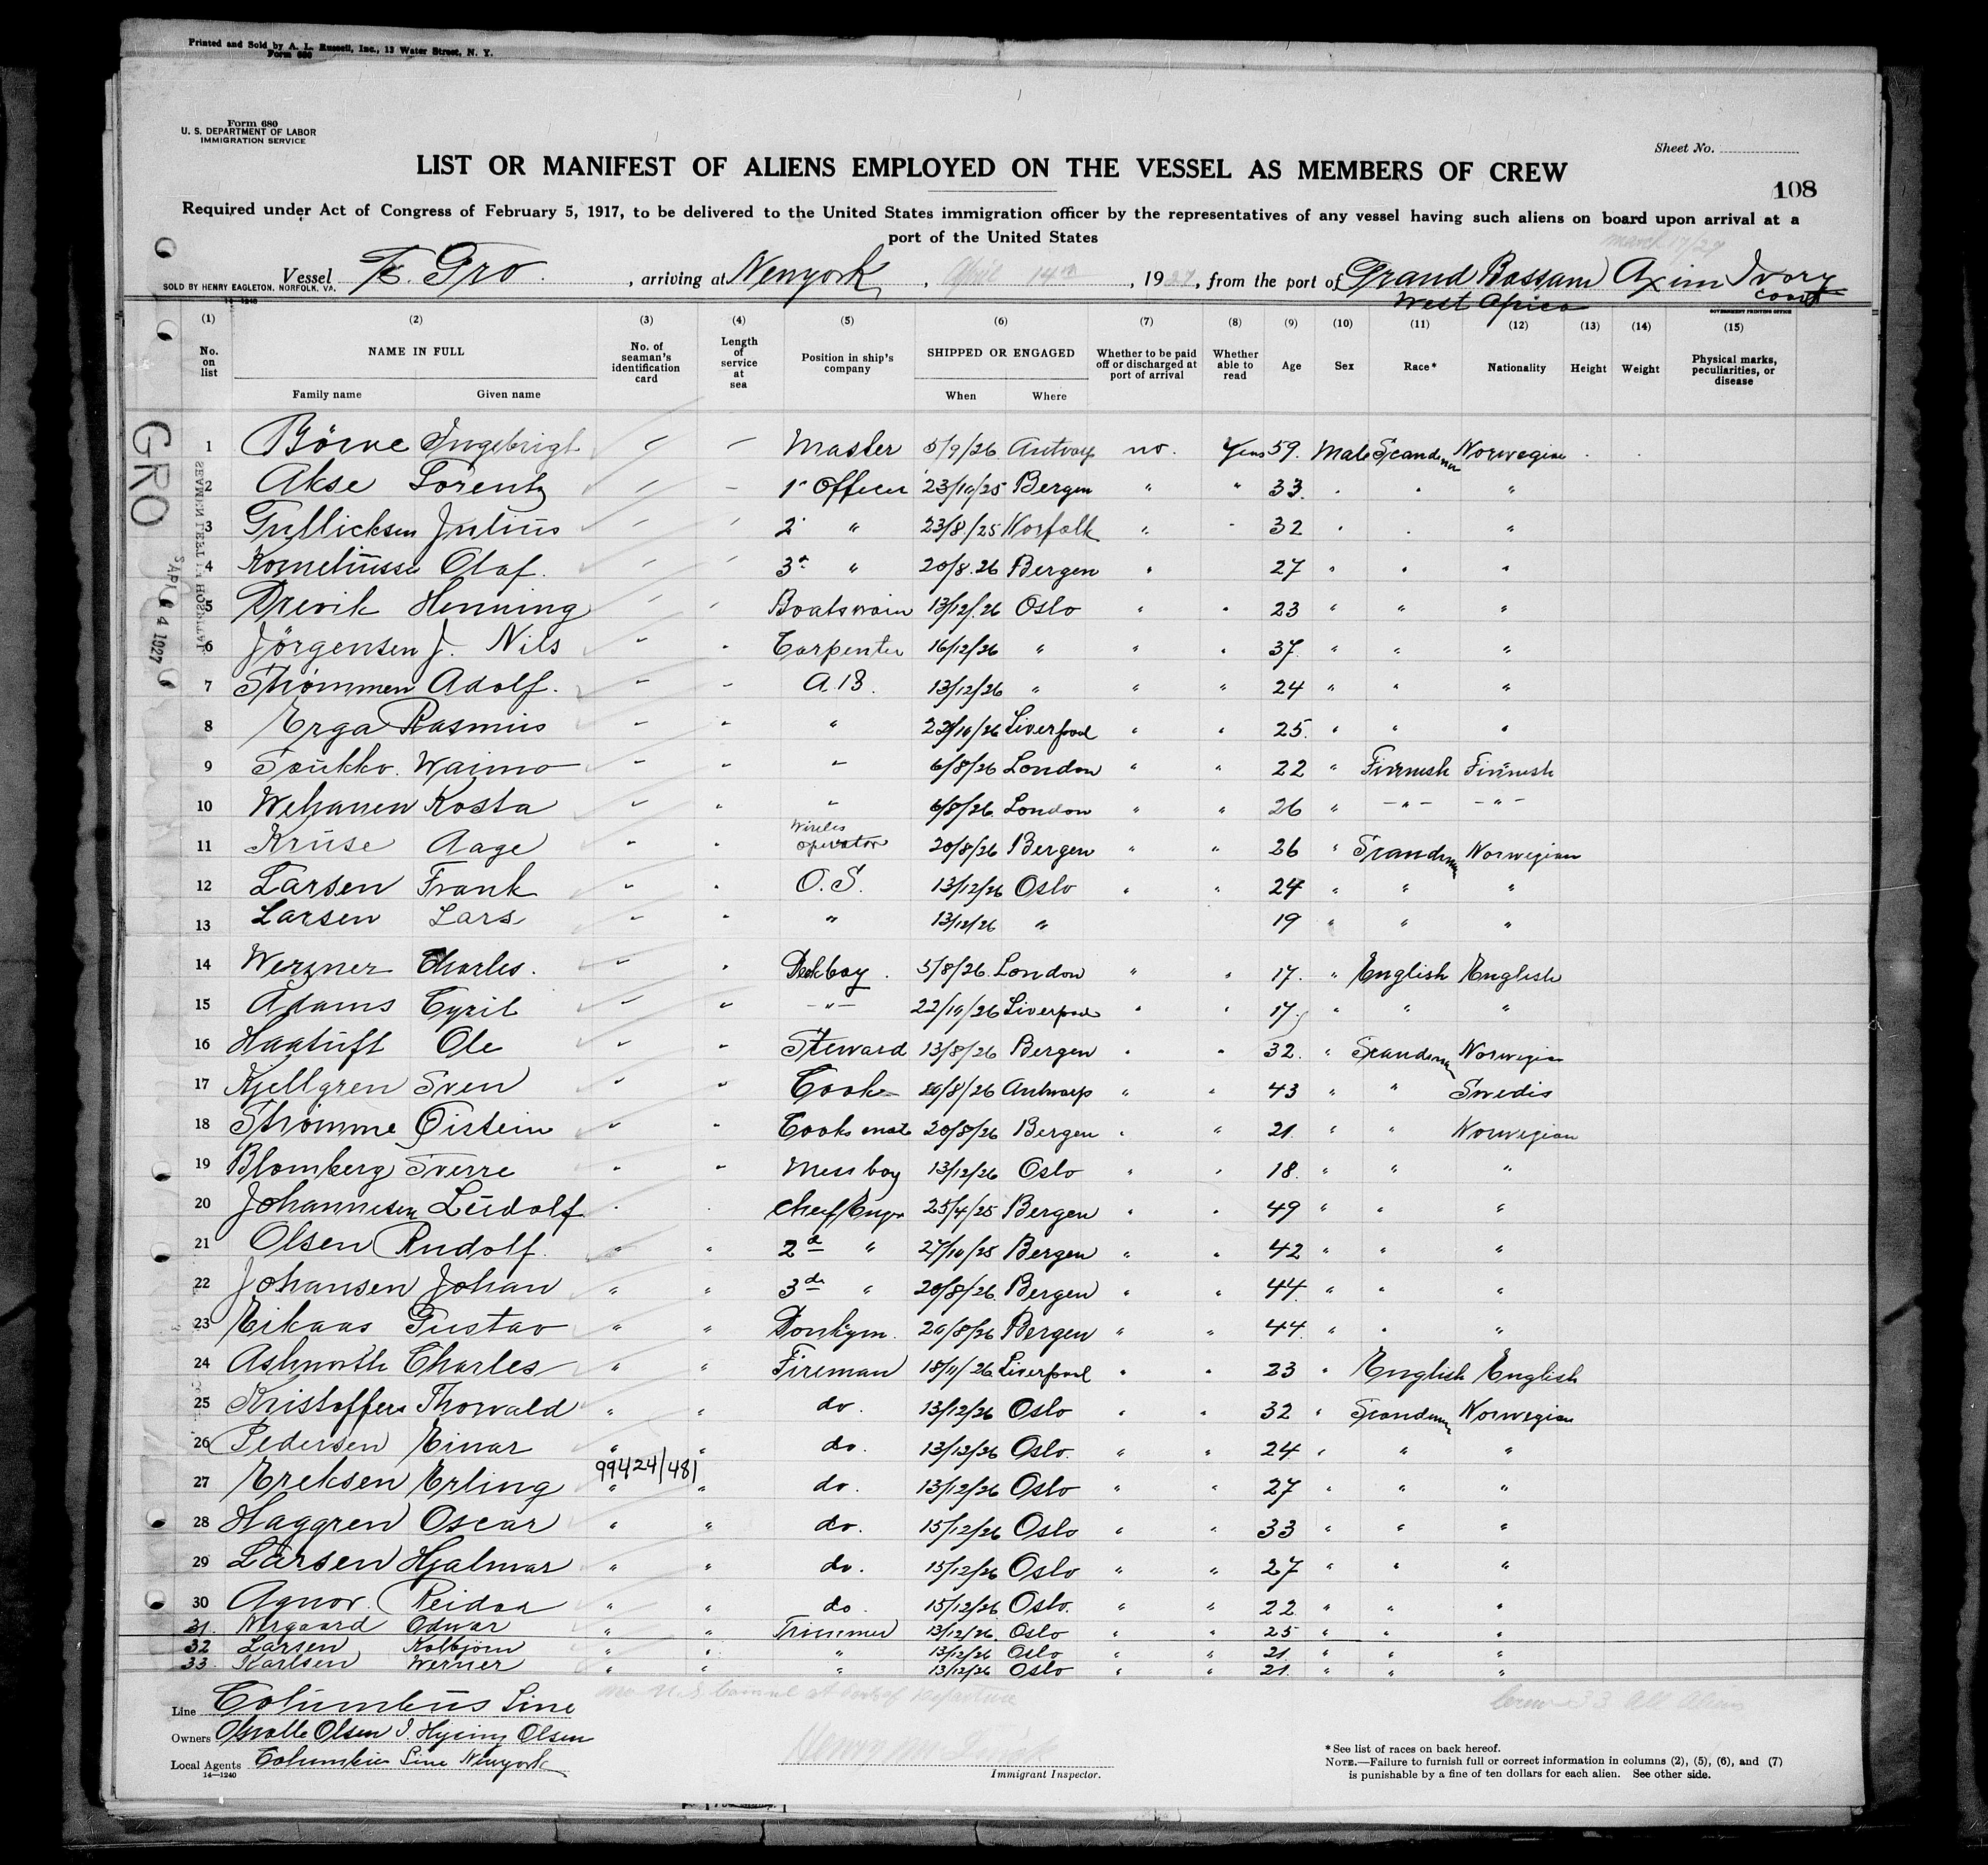 Printed and Sold by A. L. Russell, Inc., 13 Water Street, N. Y.
Form 680
Form 680
U. S. DEPARTMENT OF LABOR
IMMIGRATION SERVICE
Sheet No.
LIST OR MANIFEST OF ALIENS EMPLOYED ON THE VESSEL AS MEMBERS OF CREW
108
Required under Act of Congress of February 5, 1917, to be delivered to the United States immigration officer by the representatives of any vessel having such aliens on board upon arrival at a
port of the United States
march 17/27
Vessel Gro , arriving at Newyork , April 14th , 1927, from the port of Grand Bassam Axim Ivory coast
West Africa
SOLD BY HENRY EAGLETON, NORFOLK, VA.
14-1240
GOVERNMENT PRINTING OFFICE
(1) (2) (3) (4) (5) (6) (7) (8) (9) (10) (11) (12) (13) (14) (15)
No. on list NAME IN FULL No. of seaman's identification card Length of service at sea Position in ship's company SHIPPED OR ENGAGED Whether to be paid off or discharged at port of arrival Whether able to read Age Sex Race* Nationality Height Weight Physical marks, peculiarities, or disease
Family name Given name When Where
GRO
1 Börve Ingebrigt Master 5/9/26 Antverp no. Yes 59. Male Scandinav Norwegian
2 Akse Lorentz 1' Officer 23/10/25 Bergen " " 33. " " "
3 Gullicksen Julius 2' " 23/8/25 Norfolk " " 32 " " "
4 Korneliusse Olaf. 3d " 20/8.26 Bergen " 27 " " "
5 Drevik Henning Boatswain 13/12.26 Oslo " " 23 " " "
6 Jörgensen J. Nils Carpenter 16/12/26 " " " 37. " " "
7 Strømmen Adolf. A.B. 13/12/26 " " " 24 " " "
8 Erga Rasmus " 22/10/26 Liverpool " " 25. " " "
9 Soukko. Waimo " 6/8/26 London " " 22 " Finnish Finnish
10 Wehanen Kosta " 6/8/26. London " " 26 " -"- -"-
11 Kruse Aage Wireles operator 20/8/26 Bergen " " 26 " Scandinav Norwegian
12 Larsen Frank O.S. 13/12/26 Oslo " " 24 " " "
13 Larsen Lars " 13/12/26 " 19 " " "
14 Werzner Charles. Deckboy. 5/8/26. London " " 17. " English English
15 Adams Cyril -"- 22/10/26 Liverpool " " 17. " " "
16 Haatuft Ole Steward 13/8/26 Bergen " " 32. " Scandinav Norwegian
17 Kjellgren Sven Cook 20/8/26 Antwerp " " 43 " " Swedis
18 Strømme Øistein Cooks mate 20/8/26 Bergen " " 21. " " Norwegian
19 Blomberg Sverre Mess boy 13/12/26 Oslo " " 18. " " "
20 Johannesen Ludolf Cheif Engr 25/4/25 Bergen " " 49 " " "
21 Olsen Rudolf. " " 2d " 27/10/25 Bergen " " 42 " " "
22 Johansen Johan " " 3de " 20/8/26. Bergen " " 44. " " "
23 Eikaas Gustav " " Donkym. 20/8/26 Bergen " " 44. " " "
24 Ashworth Charles " " Fireman 18/11/26 Liverpool " " 23 " English English
25 Kristoffers Thorvald " " do. 13/12/26 Oslo " " 32 " Scandinav Norwegian
26 Pedersen Einar " " do. 13/12/26 Oslo. " " 24. " " "
99424/481
27 Ereksen Erling " " do. 13/12/26 Oslo " " 27 " " "
28 Haggren Oscar " " do. 15/12/26 Oslo " " 33 " " "
29 Larsen Hjalmar " " do. 15/12/26 Oslo " " 27 " " "
30 Agnor. Reidar " " do. 15/12/26 Oslo. " " 22 " " "
31. Nergaard Odvar " " Trimmer 13/12/26. Oslo " " 25 " " "
32 Larsen Kolbjörn " " " 13/12/26 Oslo " " 21 " " "
33. Karlsen Werner " " " 13/12/26 Oslo " " 21. " " "
no U.S. Consul at Port of departure
Crew 33 All Aliens
Line Columbus Line
Owners Olsen Hysing Olsen
Local Agents Columbus Line Newyork
14-1240
Immigrant Inspector.
* See list of races on back hereof.
NOTE.—Failure to furnish full or correct information in columns (2), (5), (6), and (7)
is punishable by a fine of ten dollars for each alien. See other side.